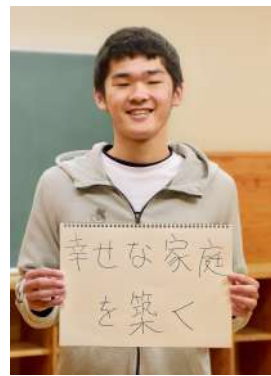 幸せな家庭
を築く